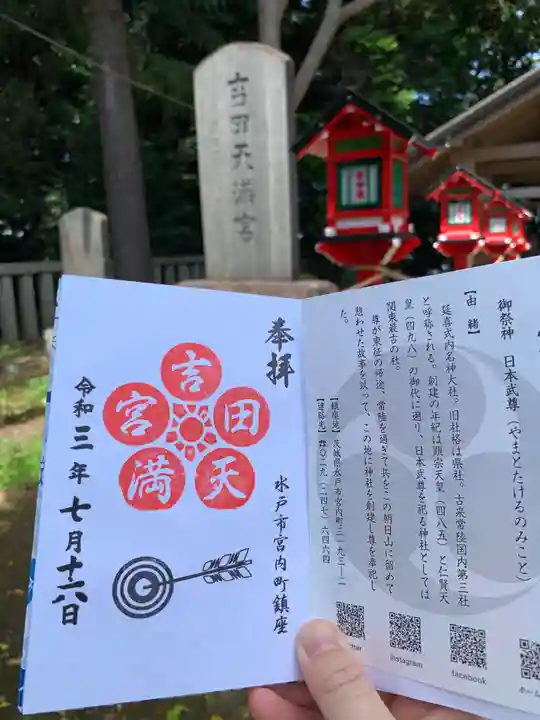 吉田天満宮
奉拝
吉
田
天
満
宮
水戸市宮内町鎮座
令和三年七月十六日
御祭神 日本武尊(やまとたけるのみこと)
【由緒】
延喜式内名神大社。旧社格は県社。古来常陸国内第三社
と呼称される。創建の年紀は顕宗天皇(四八五)と仁賢天
皇(四九八)の御代に遡り、日本武尊を祀る神社としては
関東最古の社。
尊が東征の帰途、常陸を過ぎて兵をこの朝日山に留めて
憩わせた故事を以って、この地に神社を創建し尊を奉祀し
た。
【鎮座地】茨城県水戸市宮内町三一九三-二
【連絡先】☎〇二九(二四七)六四六四
instagram
facebook